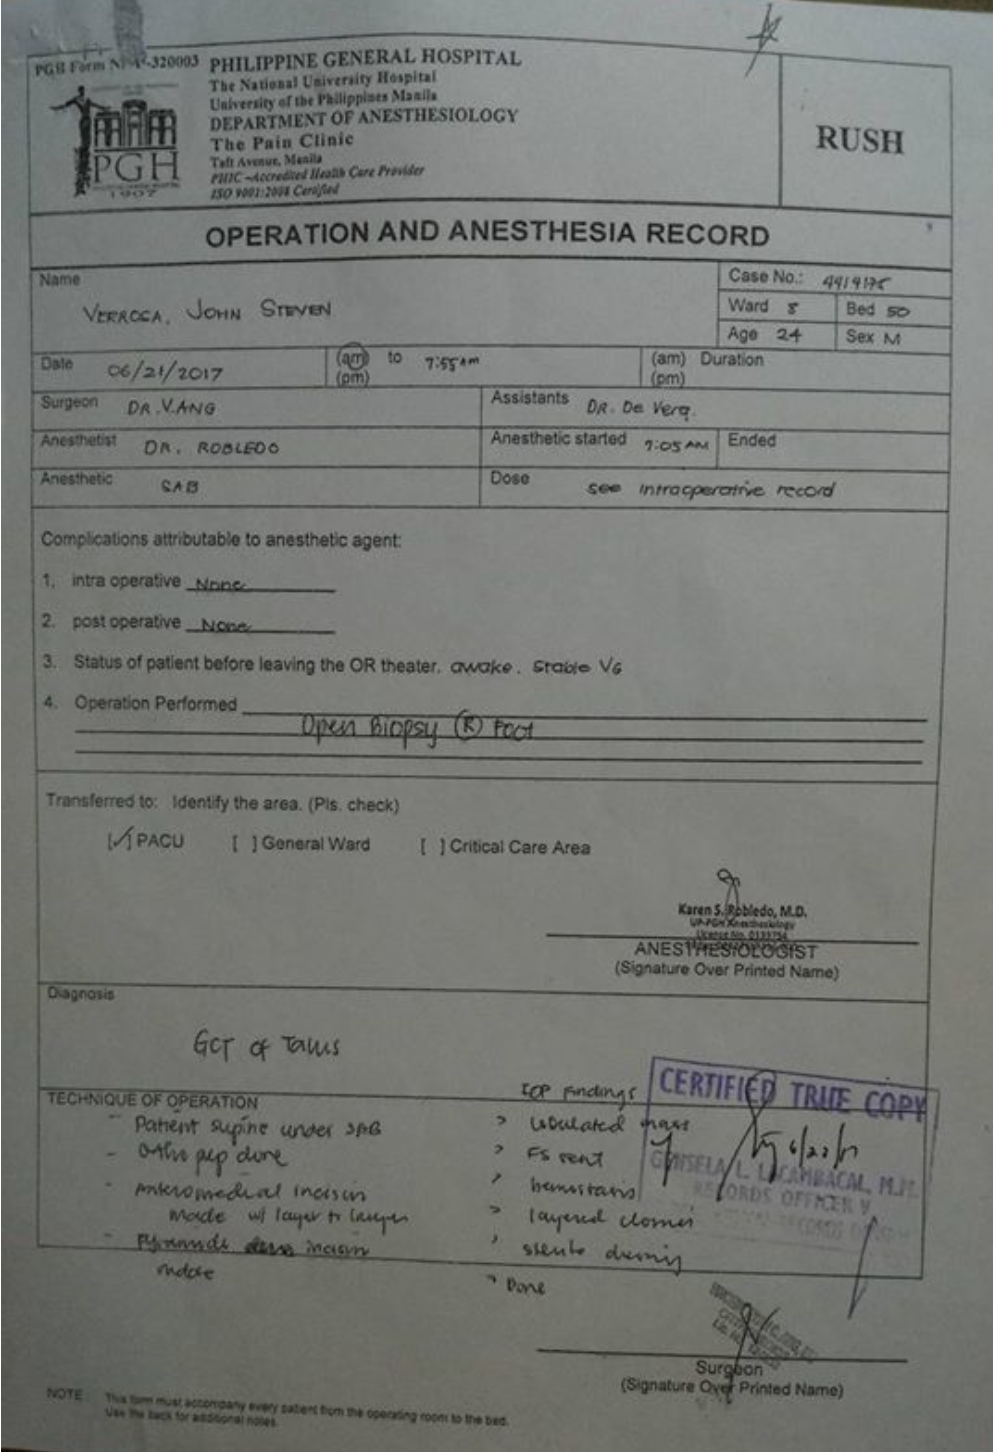 PGH Form No. -320003
PHILIPPINE GENERAL HOSPITAL
The National University Hospital
University of the Philippines Manila
DEPARTMENT OF ANESTHESIOLOGY
The Pain Clinic
Taft Avenue, Manila
PHIC -Accredited Health Care Provider
ISO 9001:2008 Certified
PGH
1907
RUSH
OPERATION AND ANESTHESIA RECORD
Name
VERROSA, JOHN STEVEN
Case No.: 4419175
Ward 8 Bed 50
Age 24 Sex M
Date 06/21/2017 (am) to 7:55 AM (am) Duration
(pm) (pm)
Surgeon DR. V. ANG Assistants DR. De Vera.
Anesthetist DR. ROBLEDO Anesthetic started 7:05 AM Ended
Anesthetic SAB Dose see intraoperative record
Complications attributable to anesthetic agent:
1. intra operative None
2. post operative None
3. Status of patient before leaving the OR theater. awake. Stable VS
4. Operation Performed
Open Biopsy (R) Foot
Transferred to: Identify the area. (Pls. check)
[✓] PACU [ ] General Ward [ ] Critical Care Area
Karen S. Robledo, M.D.
UP-PGH Anesthesiology
License No.
ANESTHESIOLOGIST
(Signature Over Printed Name)
Diagnosis
GCT of Talus
TECHNIQUE OF OPERATION
- Patient supine under SAB
- Ortho prep done
- Anteromedial incision
made w/ layer to layer
- incision
made
IOP Findings
> Lobulated mass
> FS sent
> hemostasis
> layered closure
> sterile dressing
> Done
CERTIFIED TRUE COPY
6/22/17
L. LACAMBACAL, M.
RECORDS OFFICER V
Surgeon
(Signature Over Printed Name)
NOTE: This form must accompany every patient from the operating room to the bed.
Use the back for additional notes.